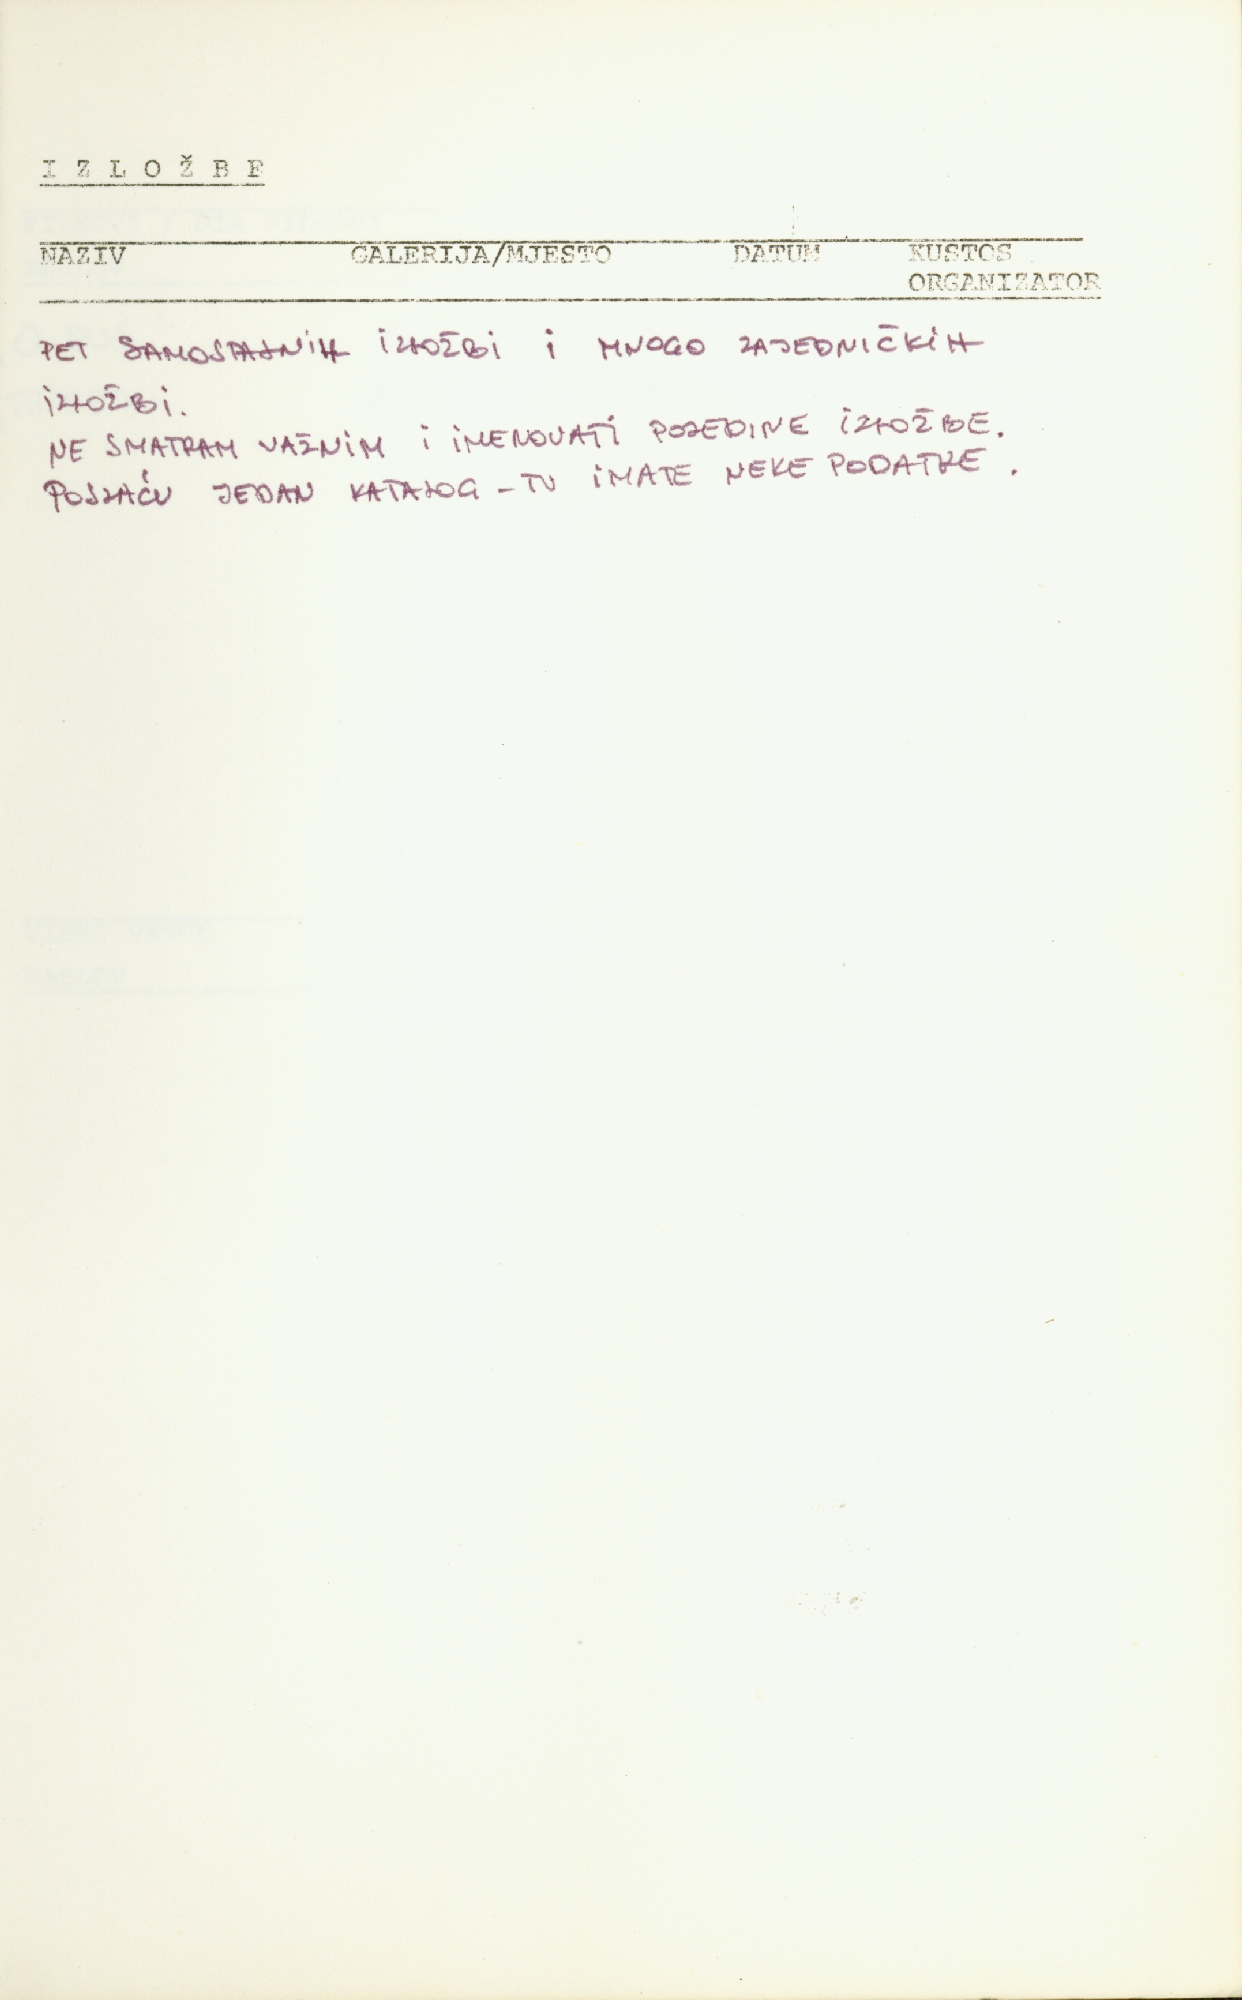 I Z L O Ž B E
NAZIV GALERIJA/MJESTO DATUM KUSTOS
ORGANIZATOR
PET SAMOSTALNIH IZLOŽBI I MNOGO ZAJEDNIČKIH
IZLOŽBI.
NE SMATRAM VAŽNIM I IMENOVATI POJEDINE IZLOŽBE.
POSLAĆU JEDAN KATALOG – TU IMATE NEKE PODATKE.